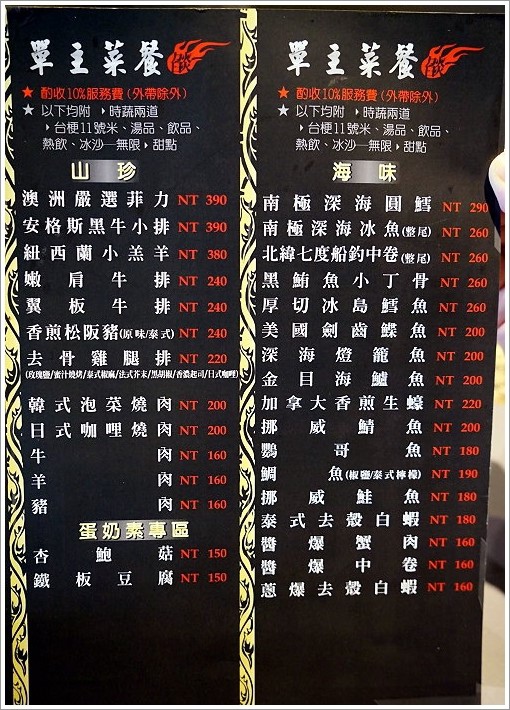 單主菜餐
★ 酌收10%服務費(外帶除外)
★ 以下均附 ‣時蔬兩道
‣台梗11號米、湯品、飲品、
熱飲、冰沙─無限‣甜點
山 珍
澳洲嚴選菲力 NT 390
安格斯黑牛小排 NT 390
紐西蘭小羔羊 NT 380
嫩肩牛排 NT 240
翼板牛排 NT 240
香煎松阪豬(原味/泰式) NT 240
去骨雞腿排 NT 220
(玫瑰鹽/蜜汁燒烤/泰式椒麻/法式芥末/黑胡椒/香濃起司/日式咖哩)
韓式泡菜燒肉 NT 200
日式咖哩燒肉 NT 200
牛肉 NT 160
羊肉 NT 160
豬肉 NT 160
蛋奶素專區
杏鮑菇 NT 150
鐵板豆腐 NT 150
單主菜餐
★ 酌收10%服務費(外帶除外)
★ 以下均附 ‣時蔬兩道
‣台梗11號米、湯品、飲品、
熱飲、冰沙─無限‣甜點
海 味
南極深海圓鱈 NT 290
南極深海冰魚(整尾) NT 260
北緯七度船釣中卷(整尾) NT 260
黑鮪魚小丁骨 NT 260
厚切冰島鱈魚 NT 260
美國劍齒鰈魚 NT 200
深海燈籠魚 NT 200
金目海鱸魚 NT 200
加拿大香煎生蠔 NT 220
挪威鯖魚 NT 200
鸚哥魚 NT 180
鯛魚(椒鹽/泰式檸檬) NT 190
挪威鮭魚 NT 180
泰式去殼白蝦 NT 180
醬爆蟹肉 NT 160
醬爆中卷 NT 160
蔥爆去殼白蝦 NT 160